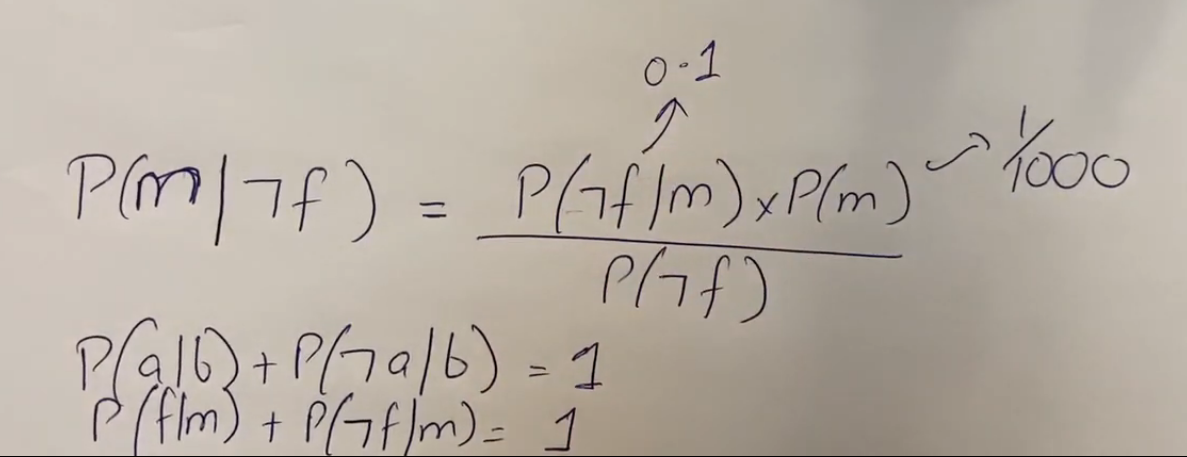 0.1
P(m|¬f) = P(¬f|m) x P(m) 1/1000
P(¬f)
P(a|b) + P(¬a|b) = 1
P(f|m) + P(¬f|m) = 1